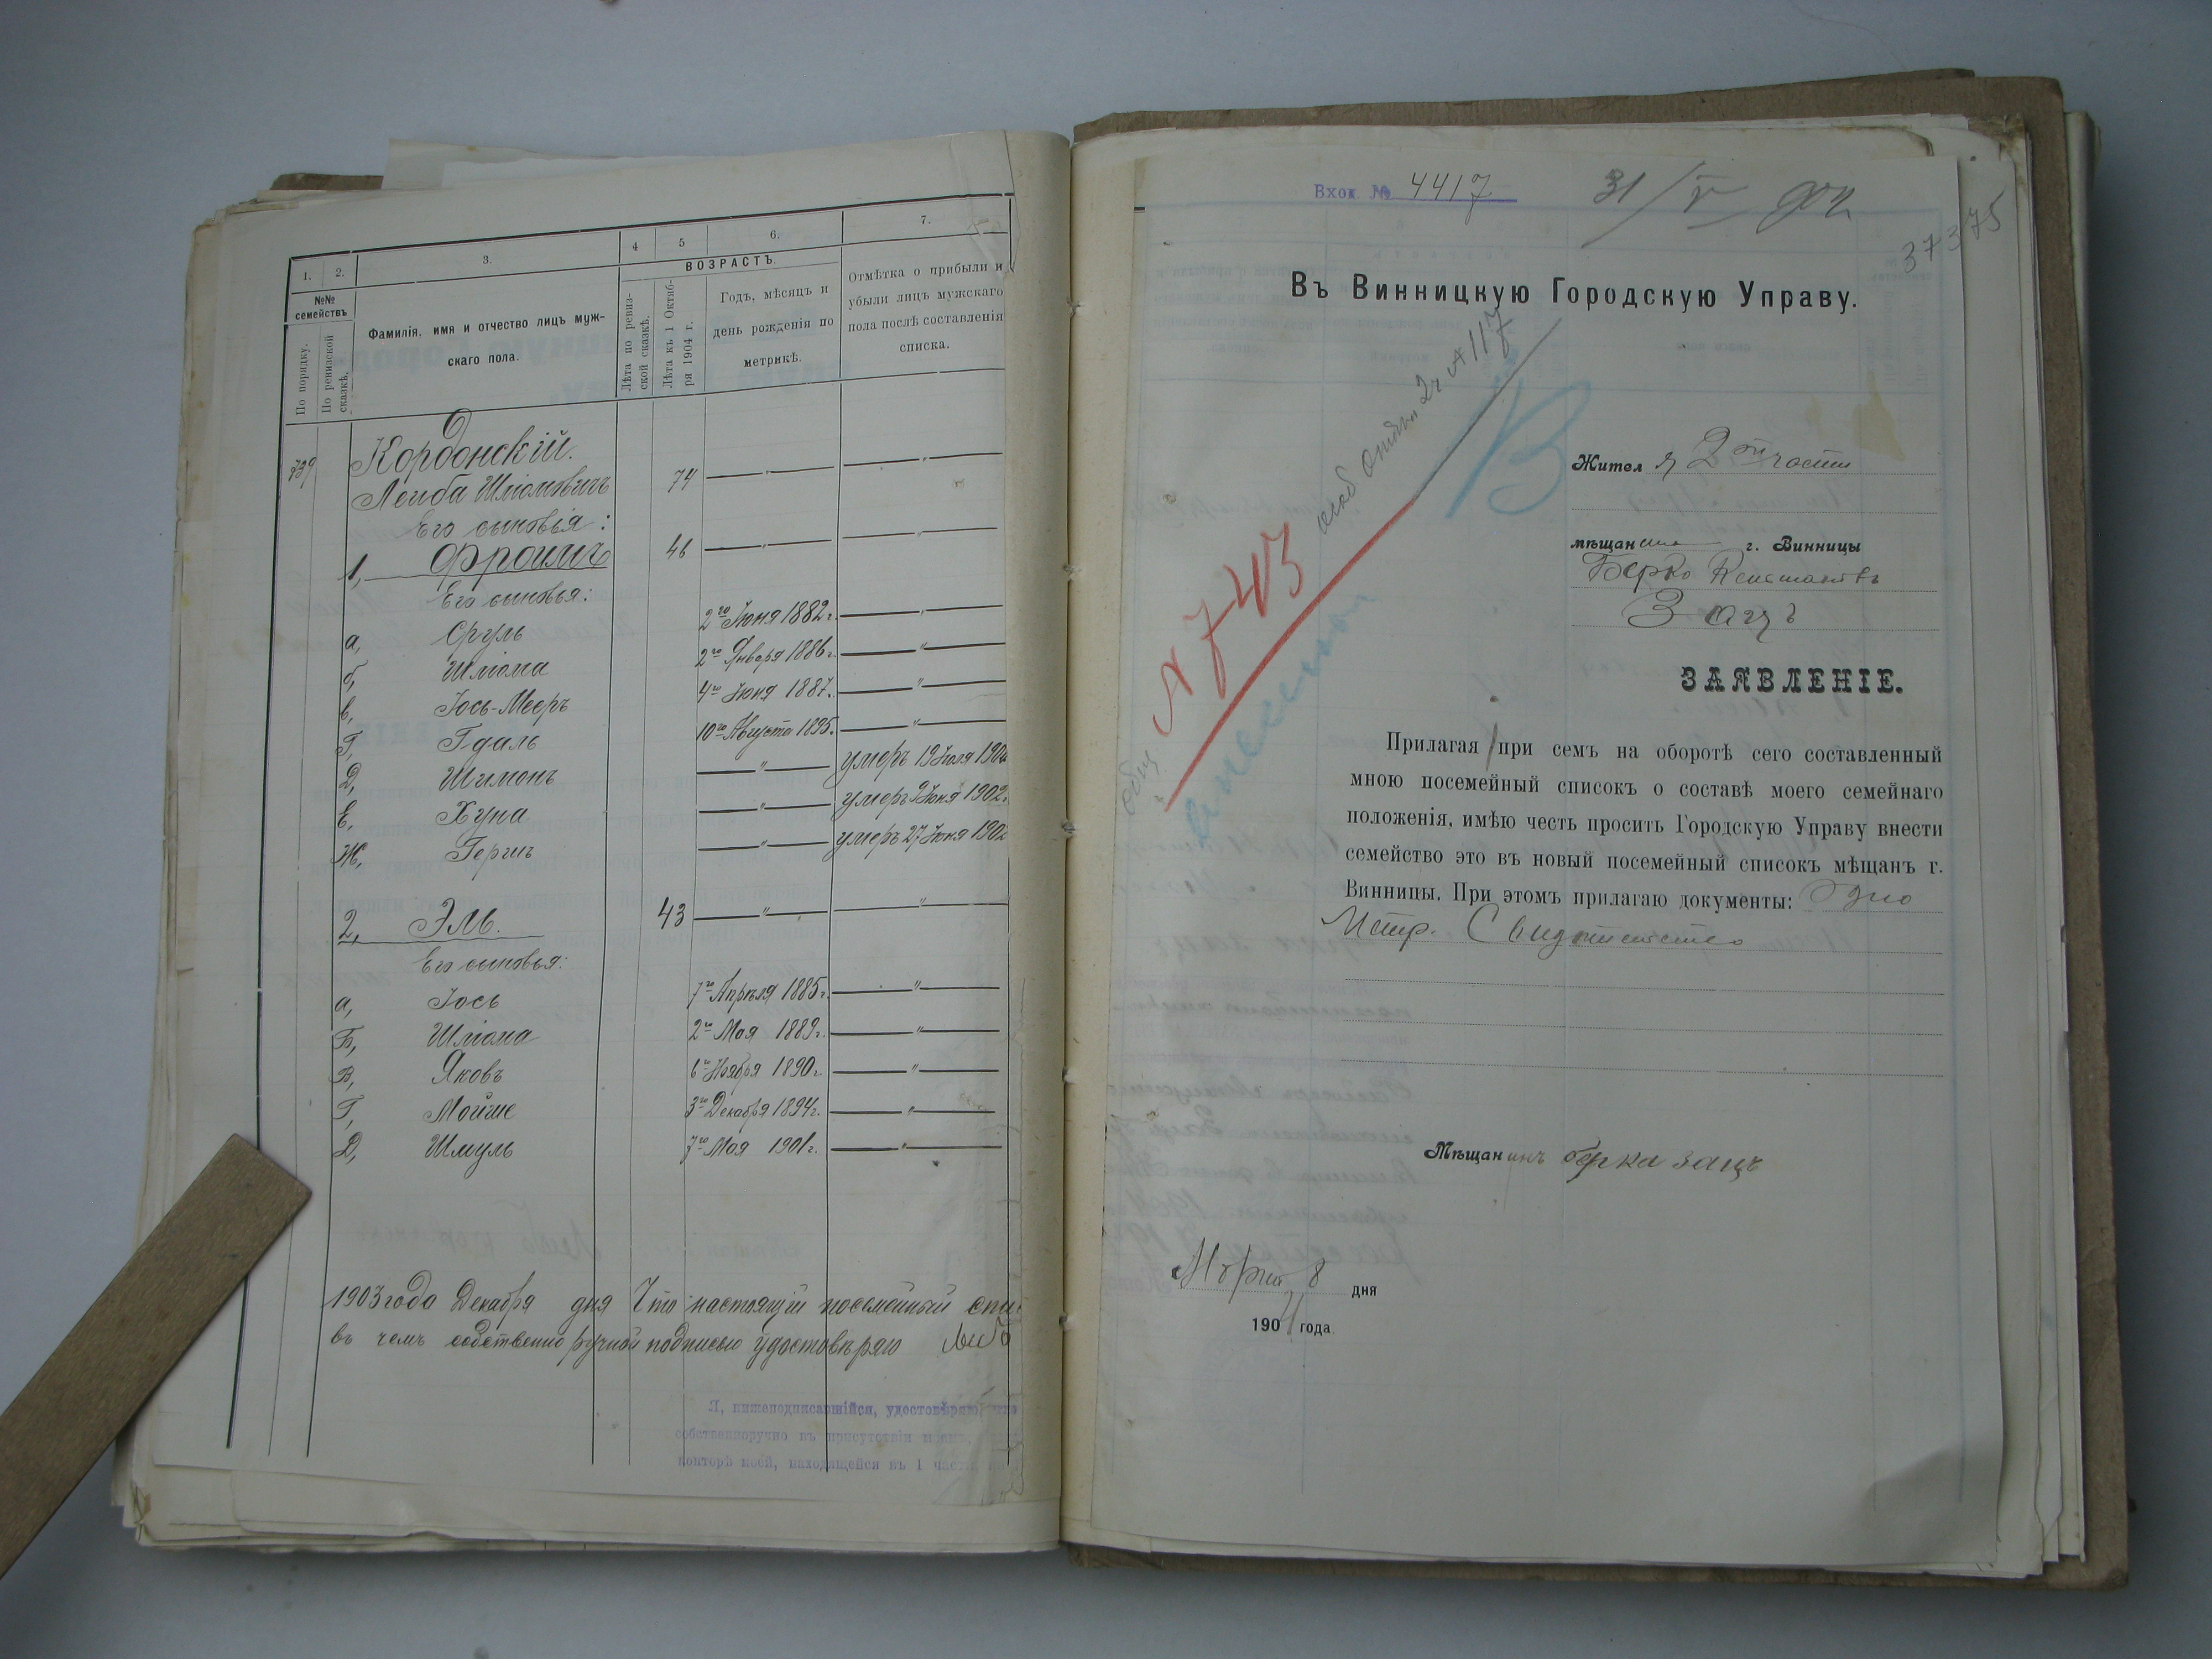 1.
2.
3.
4
5
6.
7.
№№ семействъ
По порядку.
По ревизской сказкѣ.
Фамилія, имя и отчество лицъ муж-
скаго пола.
ВОЗРАСТЪ.
Лѣта по ревиз-
ской сказкѣ.
Лѣта къ 1 Октяб-
ря 1904 г.
Годъ, мѣсяцъ и
день рожденія по
метрикѣ.
Отмѣтка о прибыли и
убыли лицъ мужскаго
пола послѣ составленія
списка.
739 Кордонскій.
Лейба Шліомовичъ 74 — " — — " —
Его сыновья:
1, Фроимъ 46 — " — — " —
Его сыновья:
а, Сруль 2го Іюня 1882 г. — " —
б, Шліома 2го Января 1886 г. — " —
в, Іось-Мееръ 4го Іюня 1887. — " —
Г, Гдаль 10го Августа 1895. — " —
Д, Шимонъ — " — умеръ 19 Іюля
Е, Хуна — " — умеръ 9 Іюня 1902.
Ж, Гершъ — " — умеръ 27 Іюня 1902
2, Эль. 43 — " — — " —
Его сыновья:
а, Іось 7го Апрѣля 1885 г. — " —
Б, Шліома 2го Мая 1889 г. — " —
В, Яковъ 6го Ноября 1890 г. — " —
Г, Мойше 3го Декабря 1894 г. — " —
Д, Шмуль 7го Мая 1901 г. — " —
1903 года Декабря дня Что настоящій посемейный спи
въ чемъ собственно ручной подписью удостовѣряю Лейб
Я, нижеподписавшійся, удостовѣряю, что
собственноручно въ присутствіи моемъ,
конторѣ моей, находящейся въ 1 части
Вход. № 4417 31/V 904
373 75
Въ Винницкую Городскую Управу.
№ 117
В
№ 743
Жителя 2ой части
мѣщанина г. Винницы
Берко
Зацъ
ЗАЯВЛЕНІЕ.
Прилагая при семъ на оборотѣ сего составленный
мною посемейный списокъ о составѣ моего семейнаго
положенія, имѣю честь просить Городскую Управу внести
семейство это въ новый посемейный списокъ мѣщанъ г.
Винницы. При этомъ прилагаю документы: Одно
Метр. Свидетельство
Мѣщанинъ берка зацъ
Марта 8 дня
1904 года.